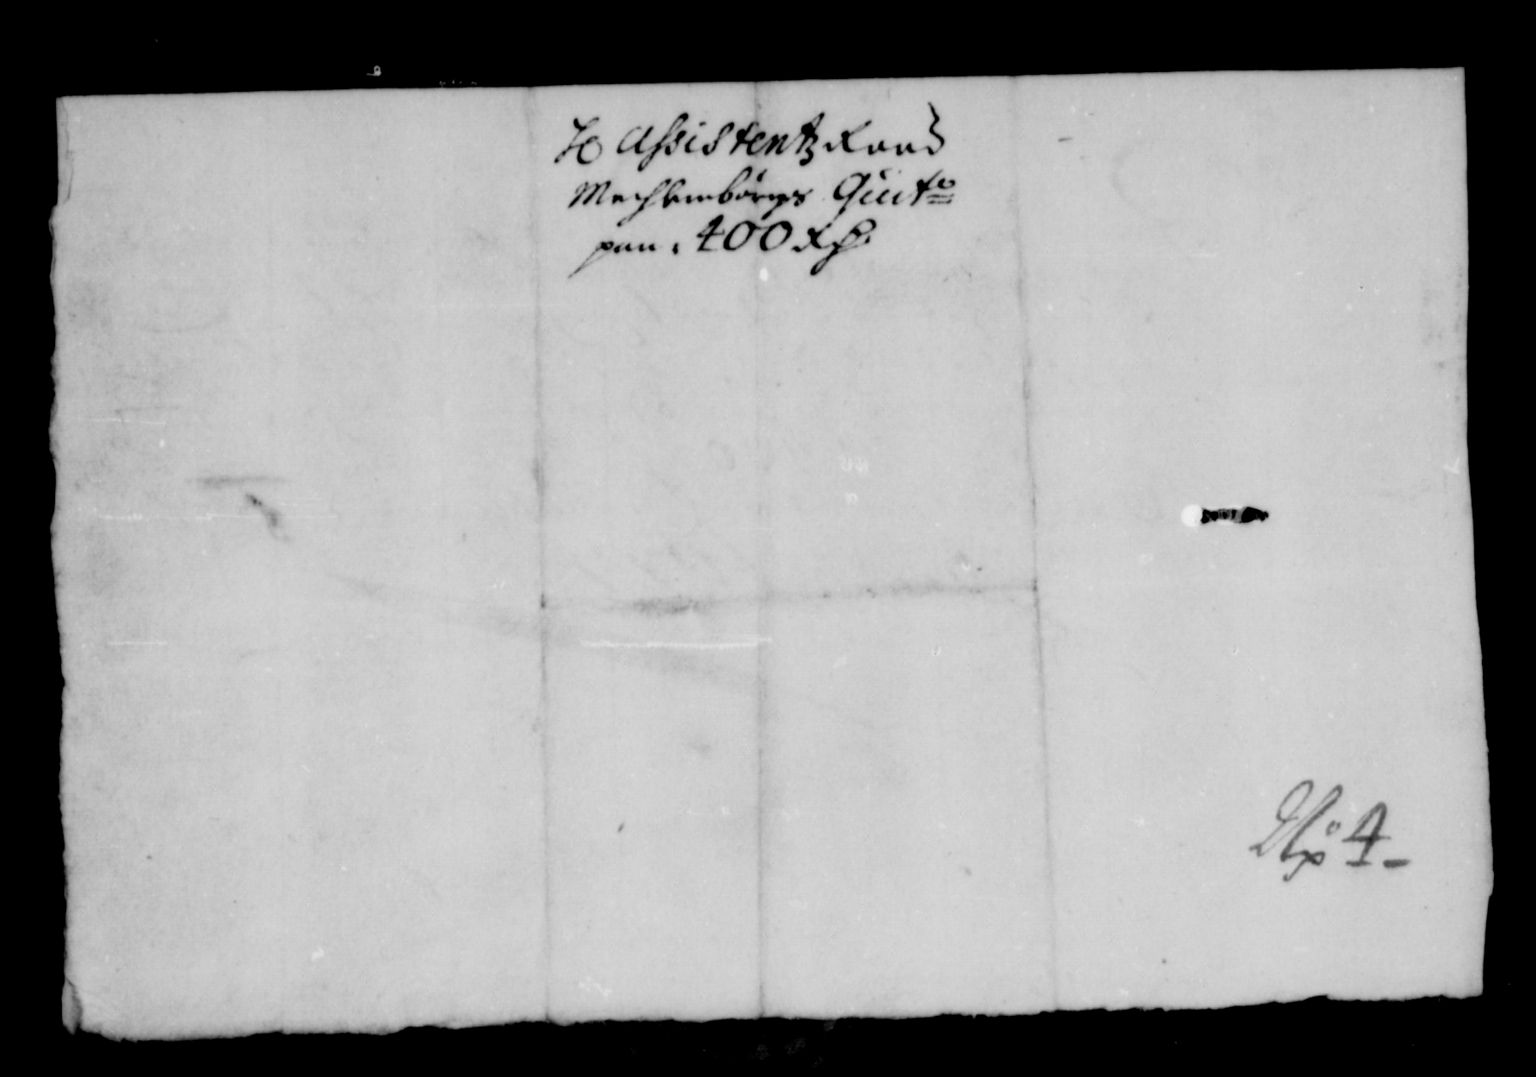 H Assistentz Raad
Mechlenbörgs Quit:º
paa. 400 Rd
No 4-